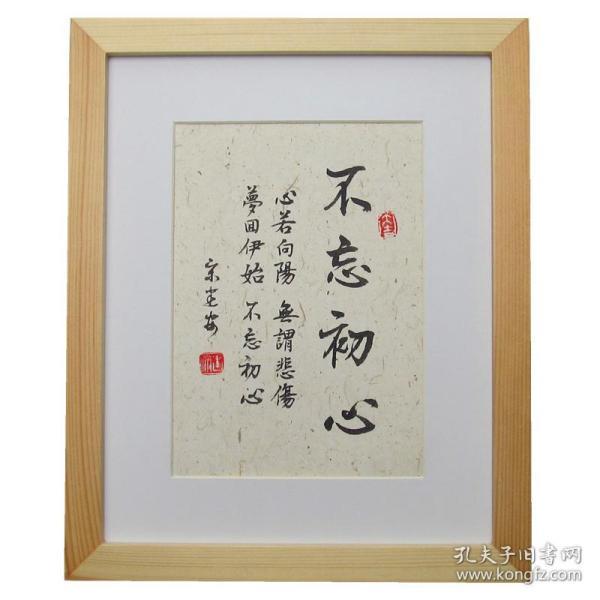 不忘初心
心若向陽 無謂悲傷
夢回伊始 不忘初心
孔夫子旧书网
www.kongfz.com